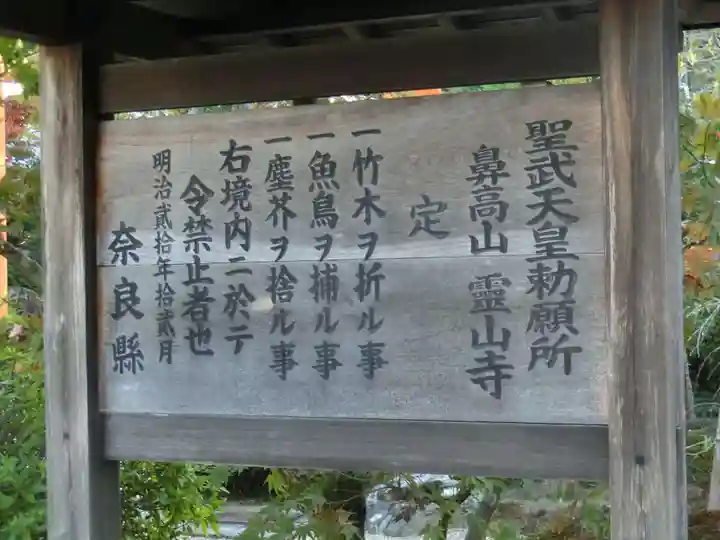 聖武天皇勅願所
鼻高山 靈山寺
定
一竹木ヲ折ル事
一魚鳥ヲ捕ル事
一塵芥ヲ捨ル事
右境内ニ於テ
令禁止者也
明治貳拾年拾貳月
奈良縣